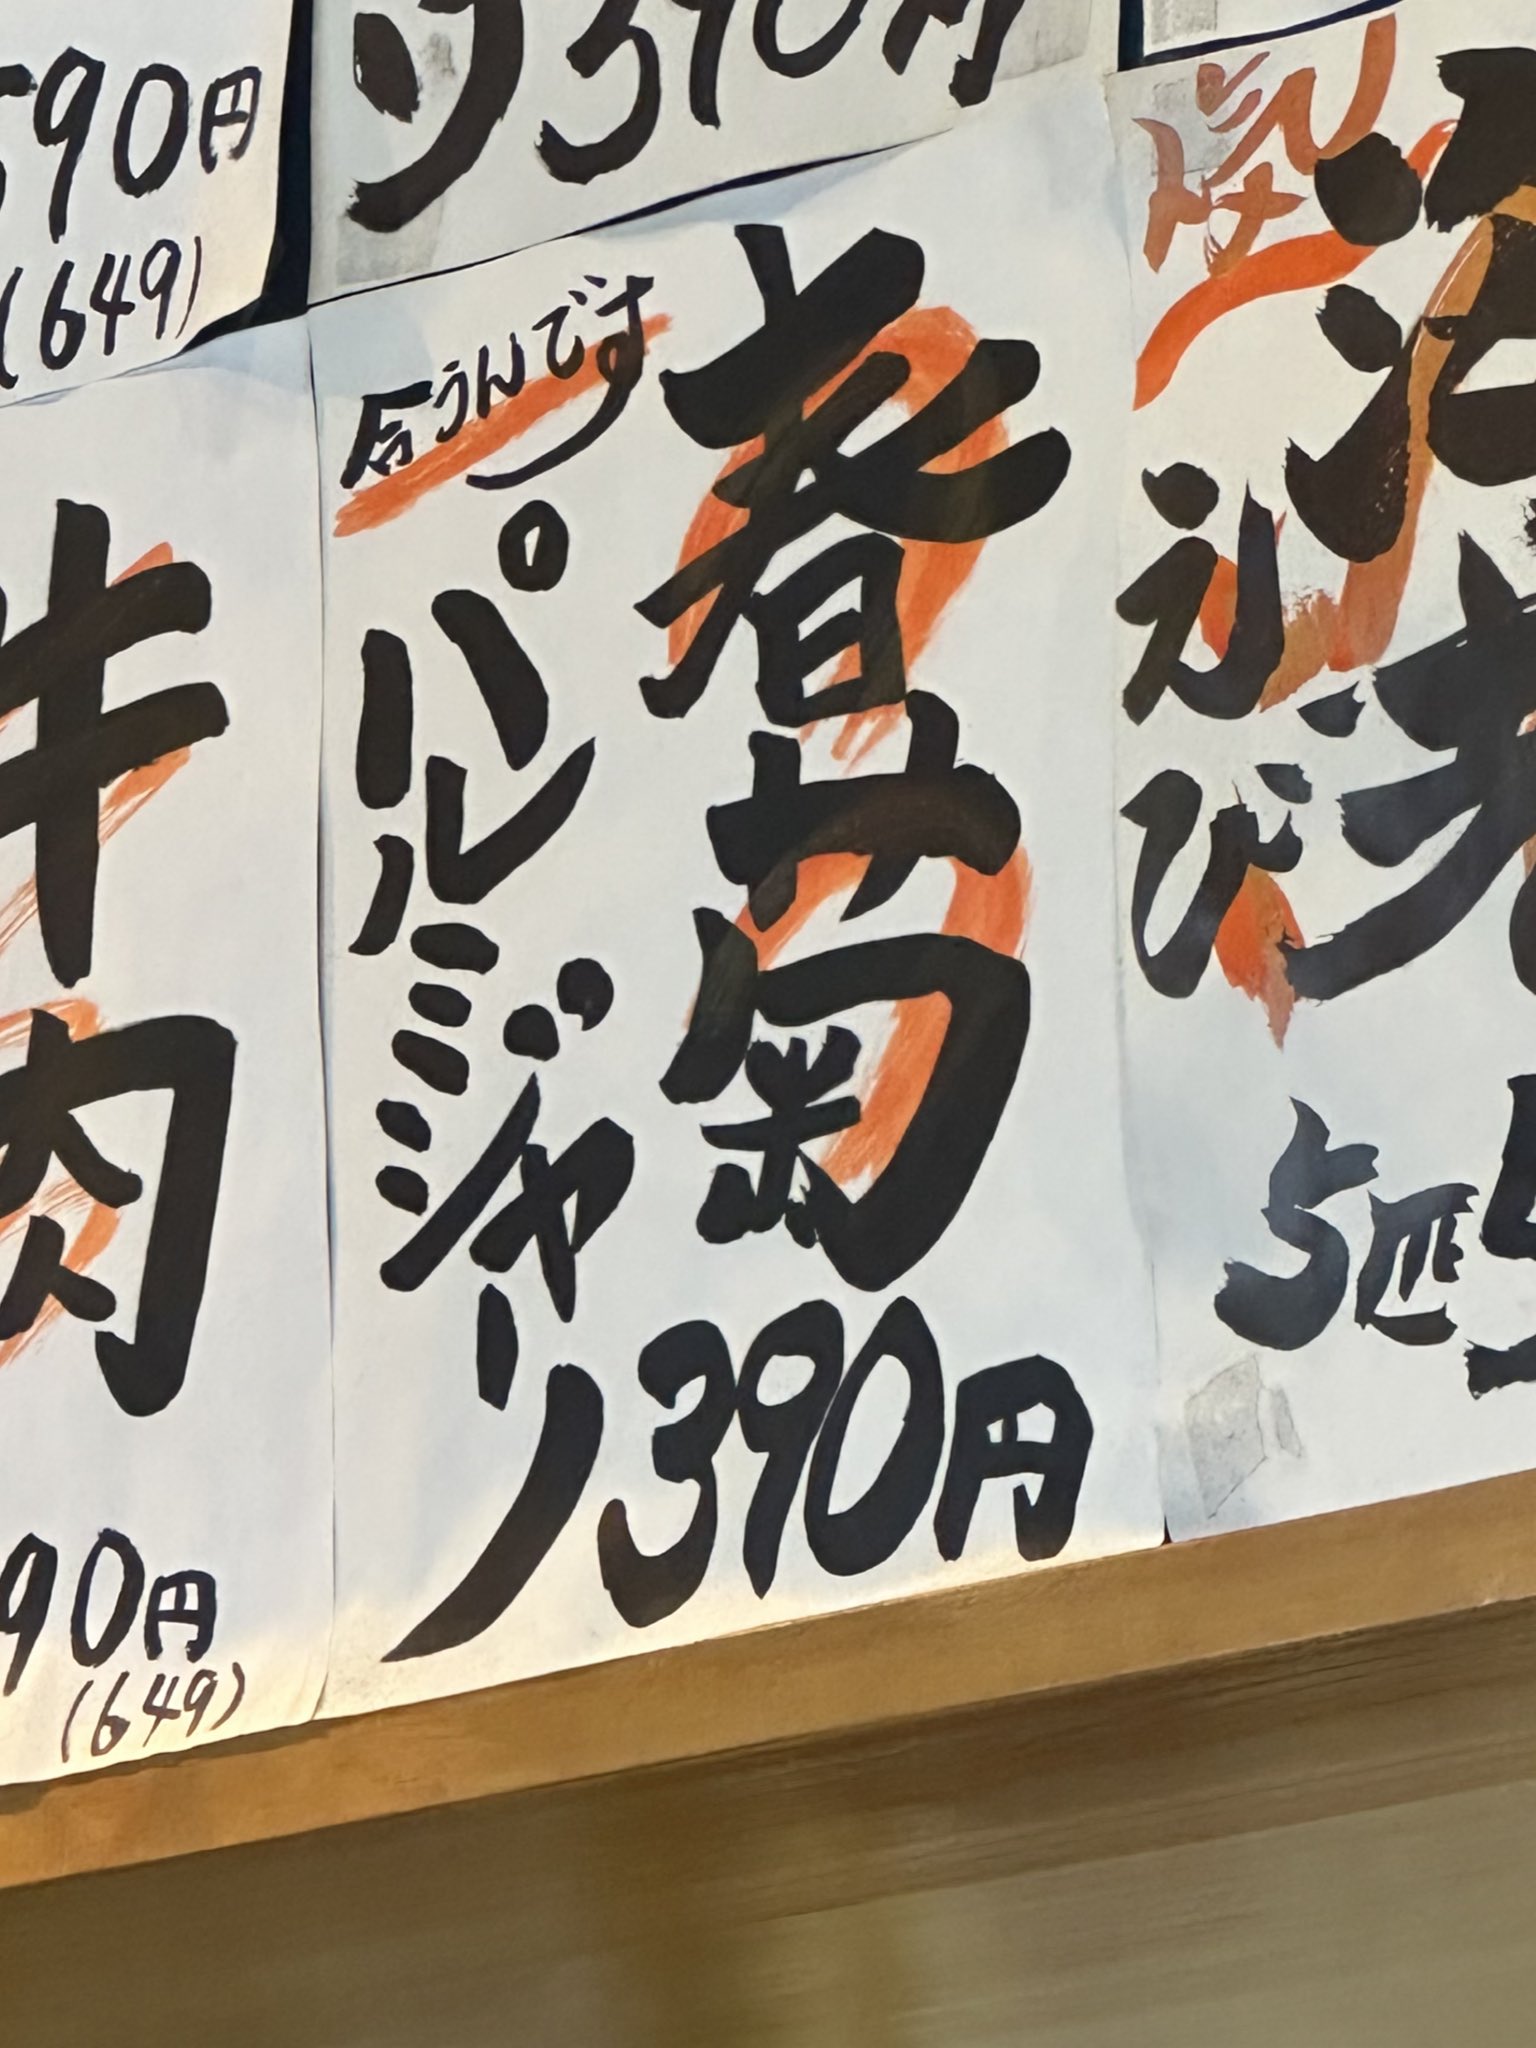 390円
590円
(649)
えび
5匹
春菊
合うんです
パルミジャーノ
390円
肉
90円
(649)